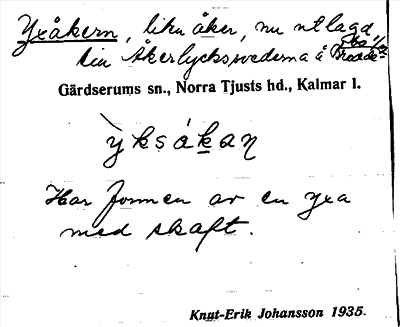 Yxåkern, liten åker, nu utlagd
till Åkerlycksvederna å
Gärdserums sn., Norra Tjusts hd., Kalmar l.
y̆ksåkan
Har formen av en yxa
med skaft.
Knut-Erik Johansson 1935.